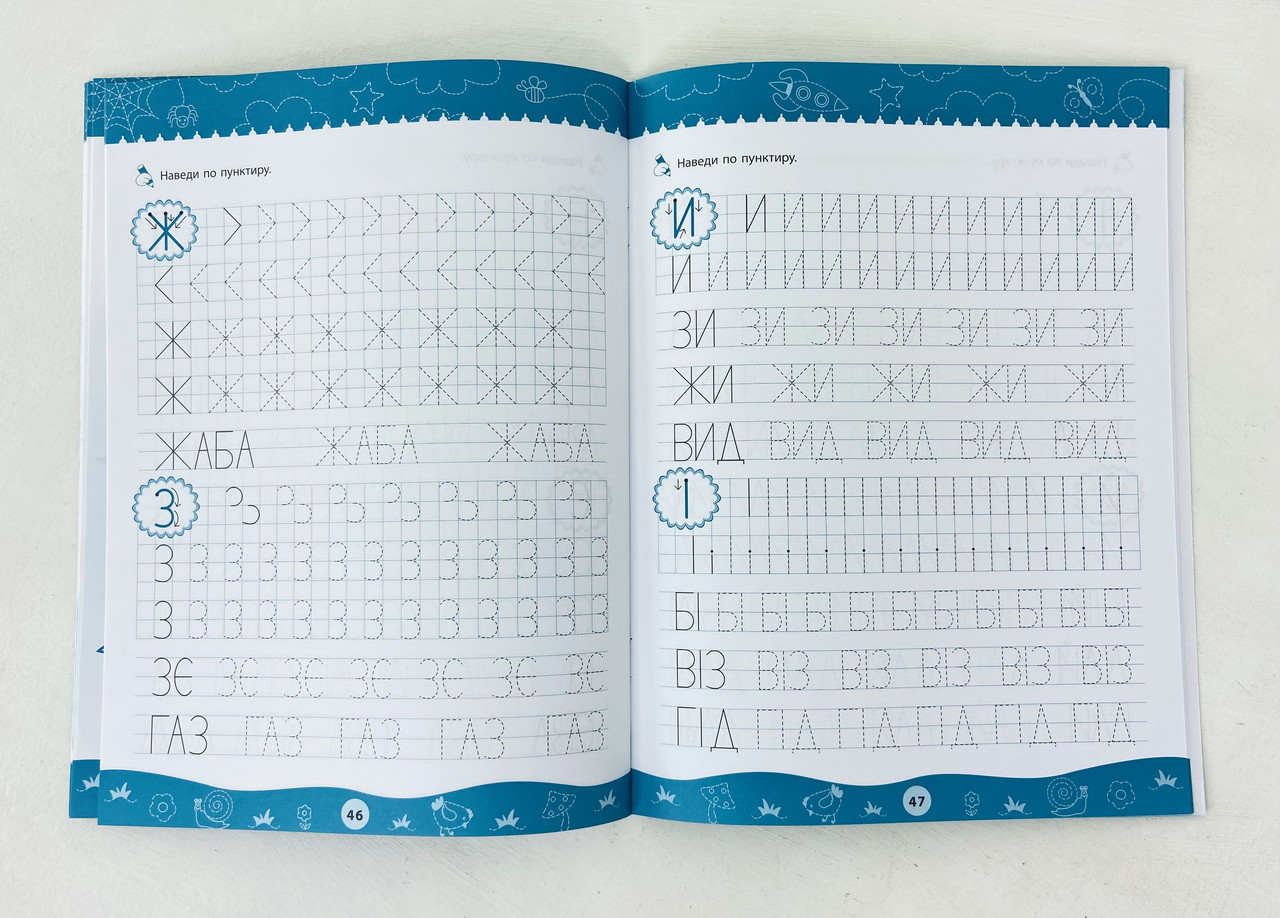 Наведи по пунктиру.
Ж
Ж Ж Ж Ж Ж Ж Ж Ж
Ж Ж Ж Ж Ж Ж Ж Ж
ЖАБА ЖАБА ЖАБА
З
З З З З З З З З З З З З З
З З З З З З З З З З З З З
ЗЄ ЗЄ ЗЄ ЗЄ ЗЄ ЗЄ ЗЄ
ГАЗ ГАЗ ГАЗ ГАЗ ГАЗ
46
Наведи по пунктиру.
И И И И И И И И И И И И
И И И И И И И И И И И И И
ЗИ ЗИ ЗИ ЗИ ЗИ ЗИ ЗИ
ЖИ ЖИ ЖИ ЖИ ЖИ
ВИД ВИД ВИД ВИД ВИД
І
БІ БІ БІ БІ БІ БІ БІ БІ БІ БІ БІ
ВІЗ ВІЗ ВІЗ ВІЗ ВІЗ ВІЗ
ГІД ГІД ГІД ГІД ГІД ГІД
47